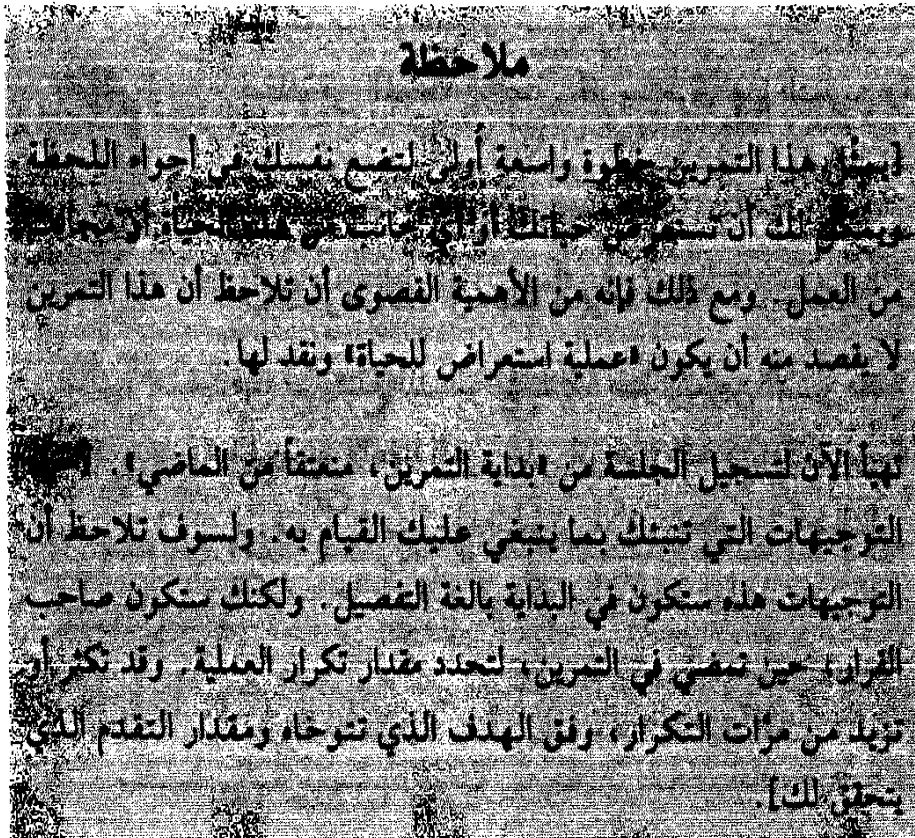 ملاحظة
[يمثل هذا التمرين خطوة واسعة أولى لتضع نفسك في أجواء اللحظة.
ويمكن لك أن تستعرض حياتك أو أي جانب في هذه الحياة أو مجالات
من العمل. ومع ذلك فإنه من الأهمية القصوى أن تلاحظ أن هذا التمرين
لا يقصد منه أن يكون «عملية استعراض للحياة» ونقد لها.
تهيأ الآن لتسجيل الجلسة من «بداية التمرين، منعتقاً من الماضي».
التوجيهات التي تنبئك بما ينبغي عليك القيام به. ولسوف تلاحظ أن
التوجيهات هذه ستكون في البداية بالغة التفصيل. ولكنك ستكون صاحب
القرار، حين تمضي في التمرين، لتحدد مقدار تكرار العملية. وقد تكثر أو
تزيد من مرّات التكرار، وفق الهدف الذي تتوخاه ومقدار التقدم الذي
يتحقق لك].